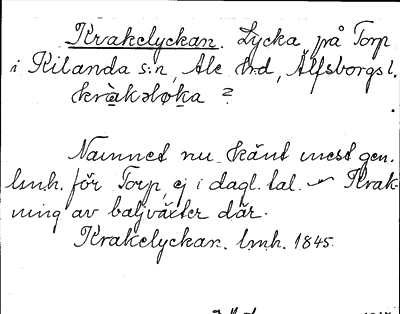 Krakelyckan. Lycka på Torp
i Kilanda s:n, Ale hrd, Älfsborgs l.
kràkəløka ?
Namnet nu känt mest gen.
lmh. för Torp, ej i dagl. tal. — Krak-
ning av baljväxter där.
Krakelyckan. lmh. 1845.